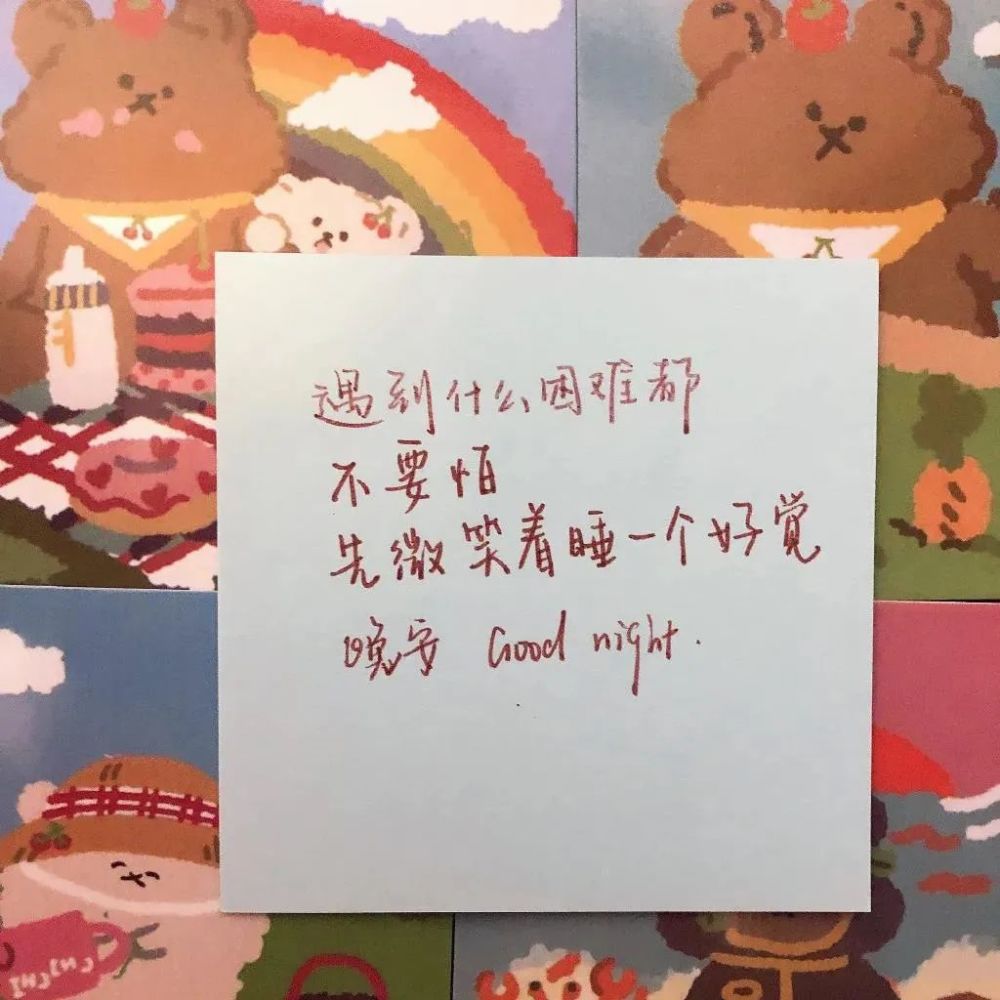 遇到什么困难都
不要怕
先微笑着睡一个好觉
晚安 Good night.